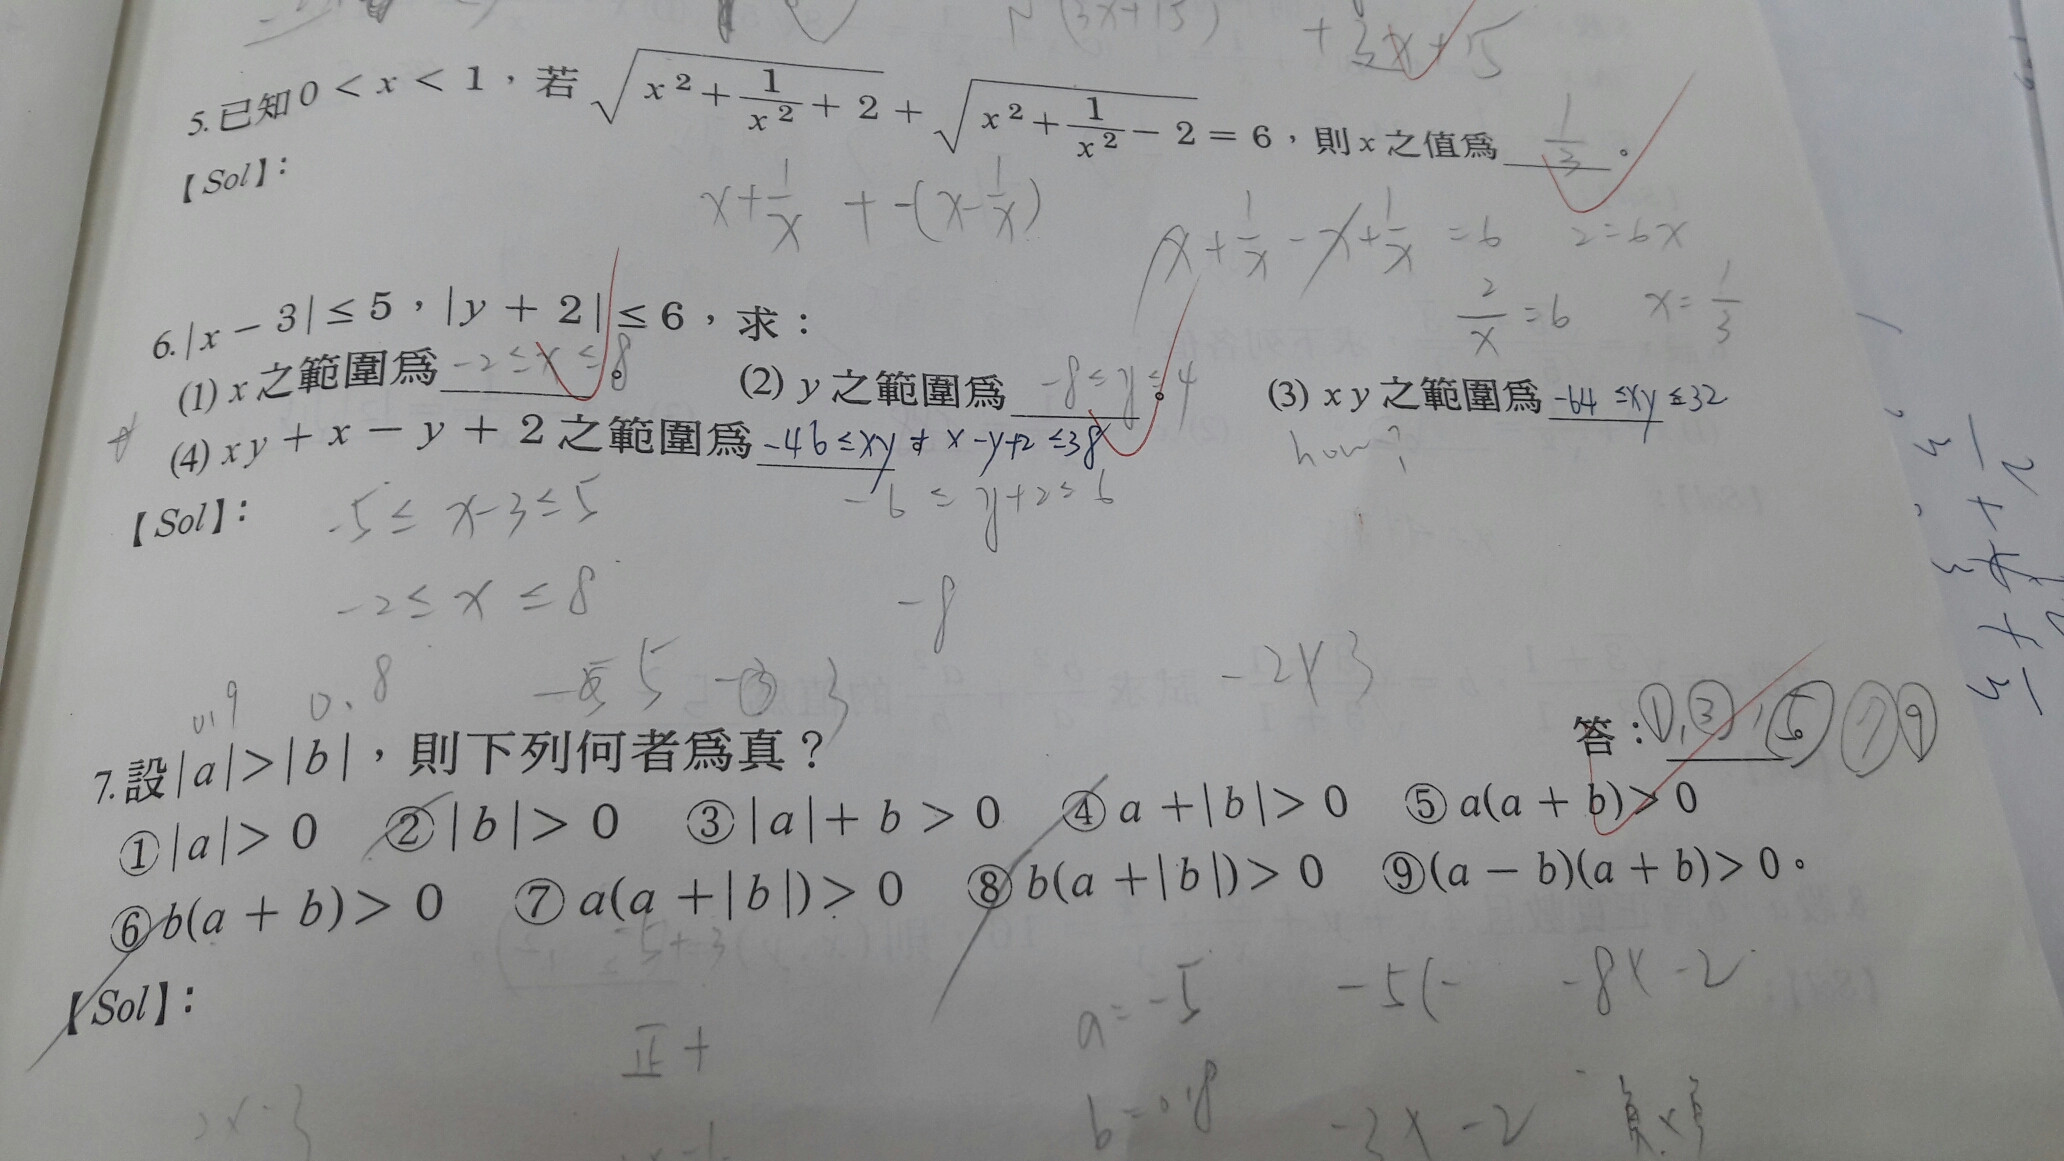 (3x+15)
+3x+15
5.已知0 < x < 1，若√(x²+1/x²+2)+√(x²+1/x²−2)=6，則x之值爲 1/3 。
【Sol】：
x+1/x + -(x-1/x)
x+1/x-x+1/x=6 2=6x
2/x=6 x=1/3
6.|x−3|≤5，|y+2|≤6，求：
(1) x之範圍爲 -2≤x≤8。 (2) y之範圍爲 -8≤y≤4。 (3) xy之範圍爲 -64≤xy≤32
how?
(4) xy+x−y+2之範圍爲 -46≤xy+x-y+2≤38
【Sol】：
-5≤x-3≤5 -6≤y+2≤6
-2≤x≤8 -8
0.9 0.8 5 3 -2x3
7.設|a|>|b|，則下列何者爲真？ 答：①,③,⑤⑦⑨
①|a|>0 ②|b|>0 ③|a|+b>0 ④a+|b|>0 ⑤a(a+b)>0
⑥b(a+b)>0 ⑦a(a+|b|)>0 ⑧b(a+|b|)>0 ⑨(a−b)(a+b)>0。
【Sol】：
a=-5 -5(- -8x-2
正+
b=0.8 -3x-2 負x負